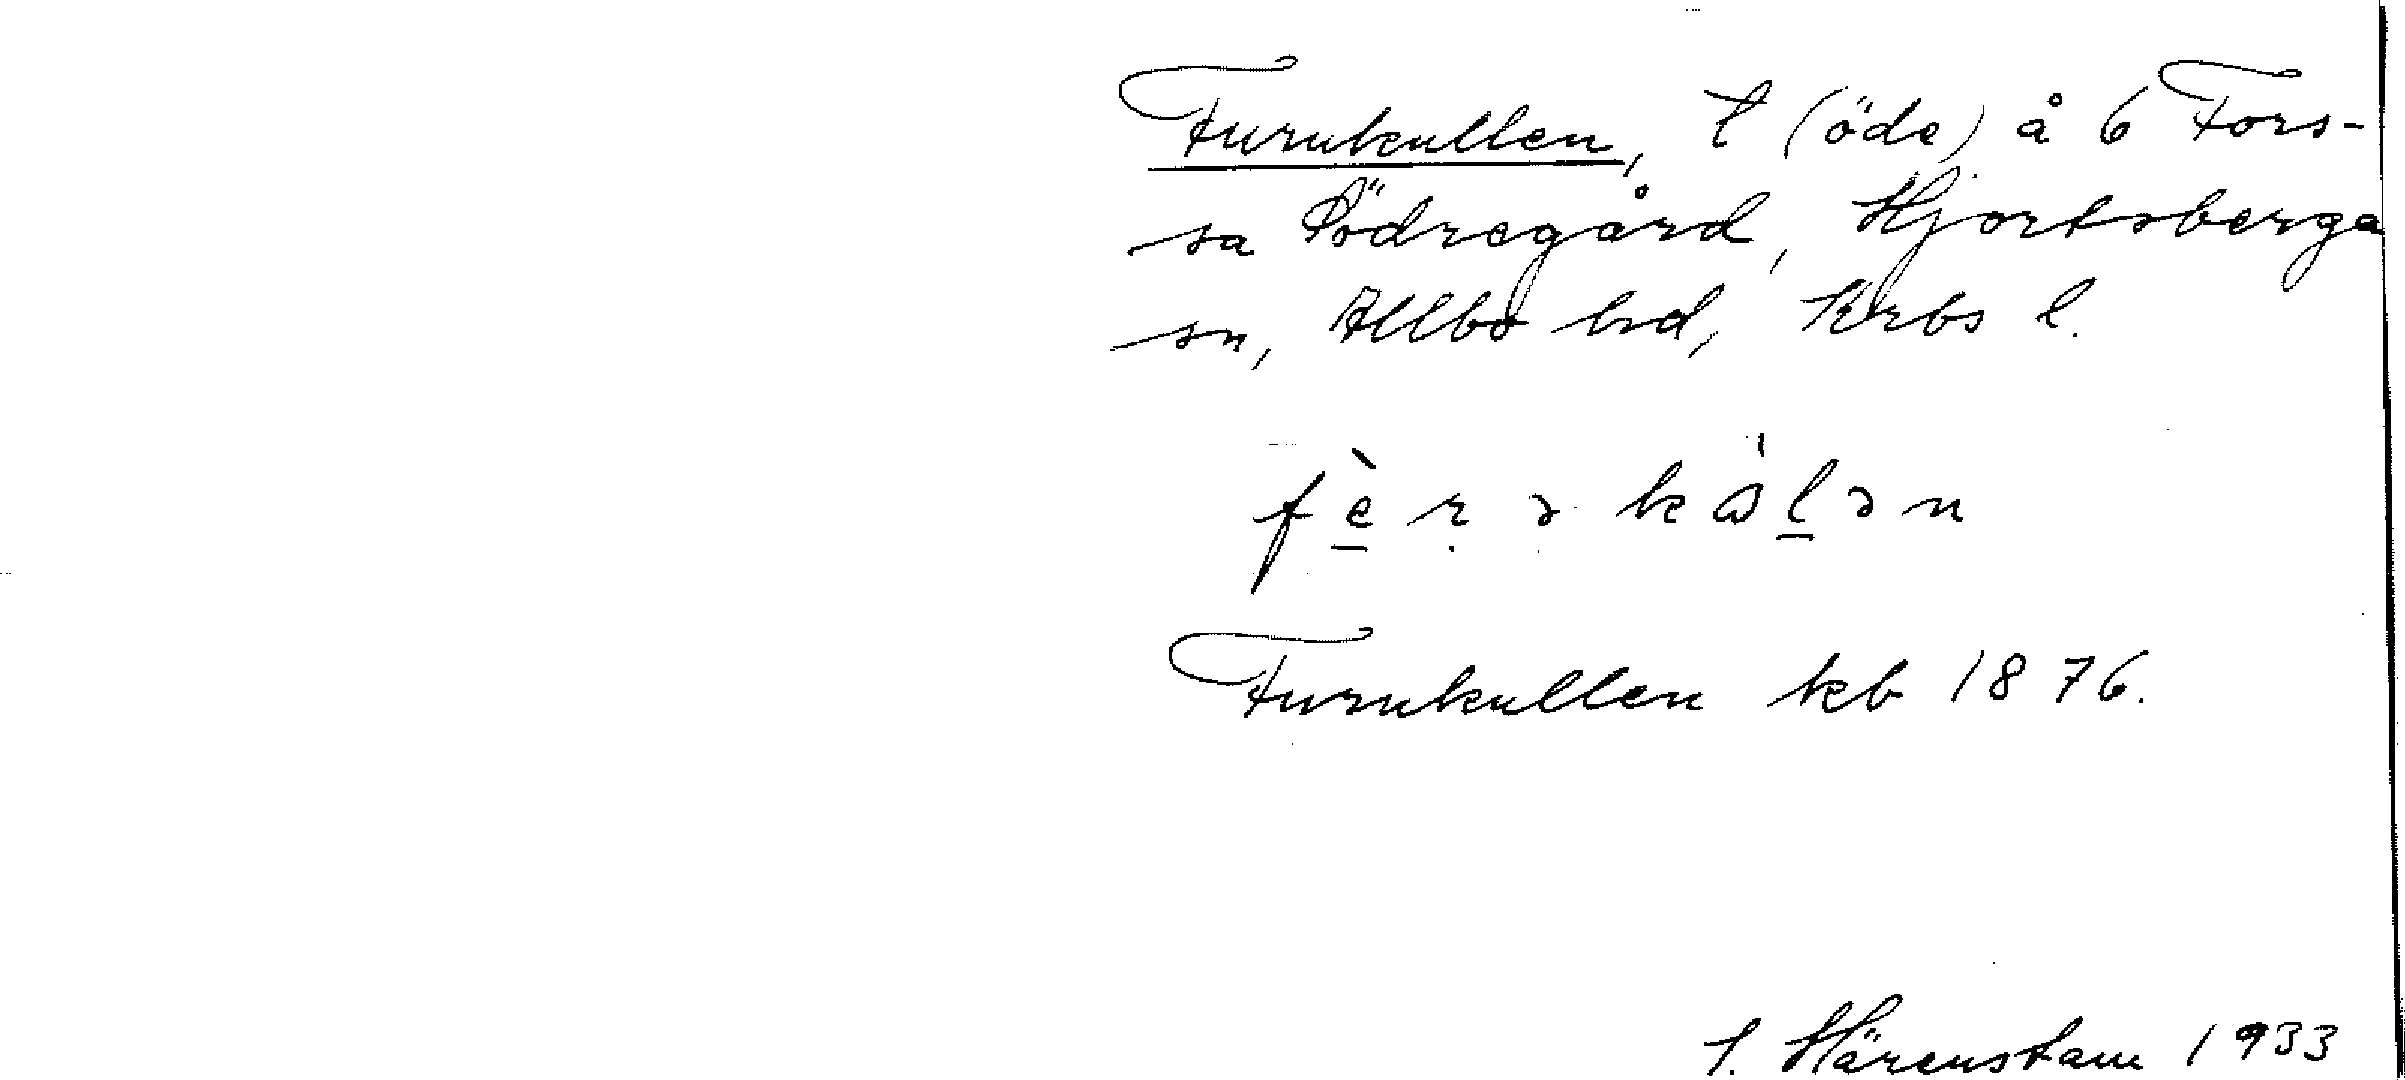 Furukullen, l (öde) å 6 Fors-
sa Södregård, Hjortsberga
sn, Allbo hd, Krbs l.
Furukullen kb 1876.
Härenstam 1933